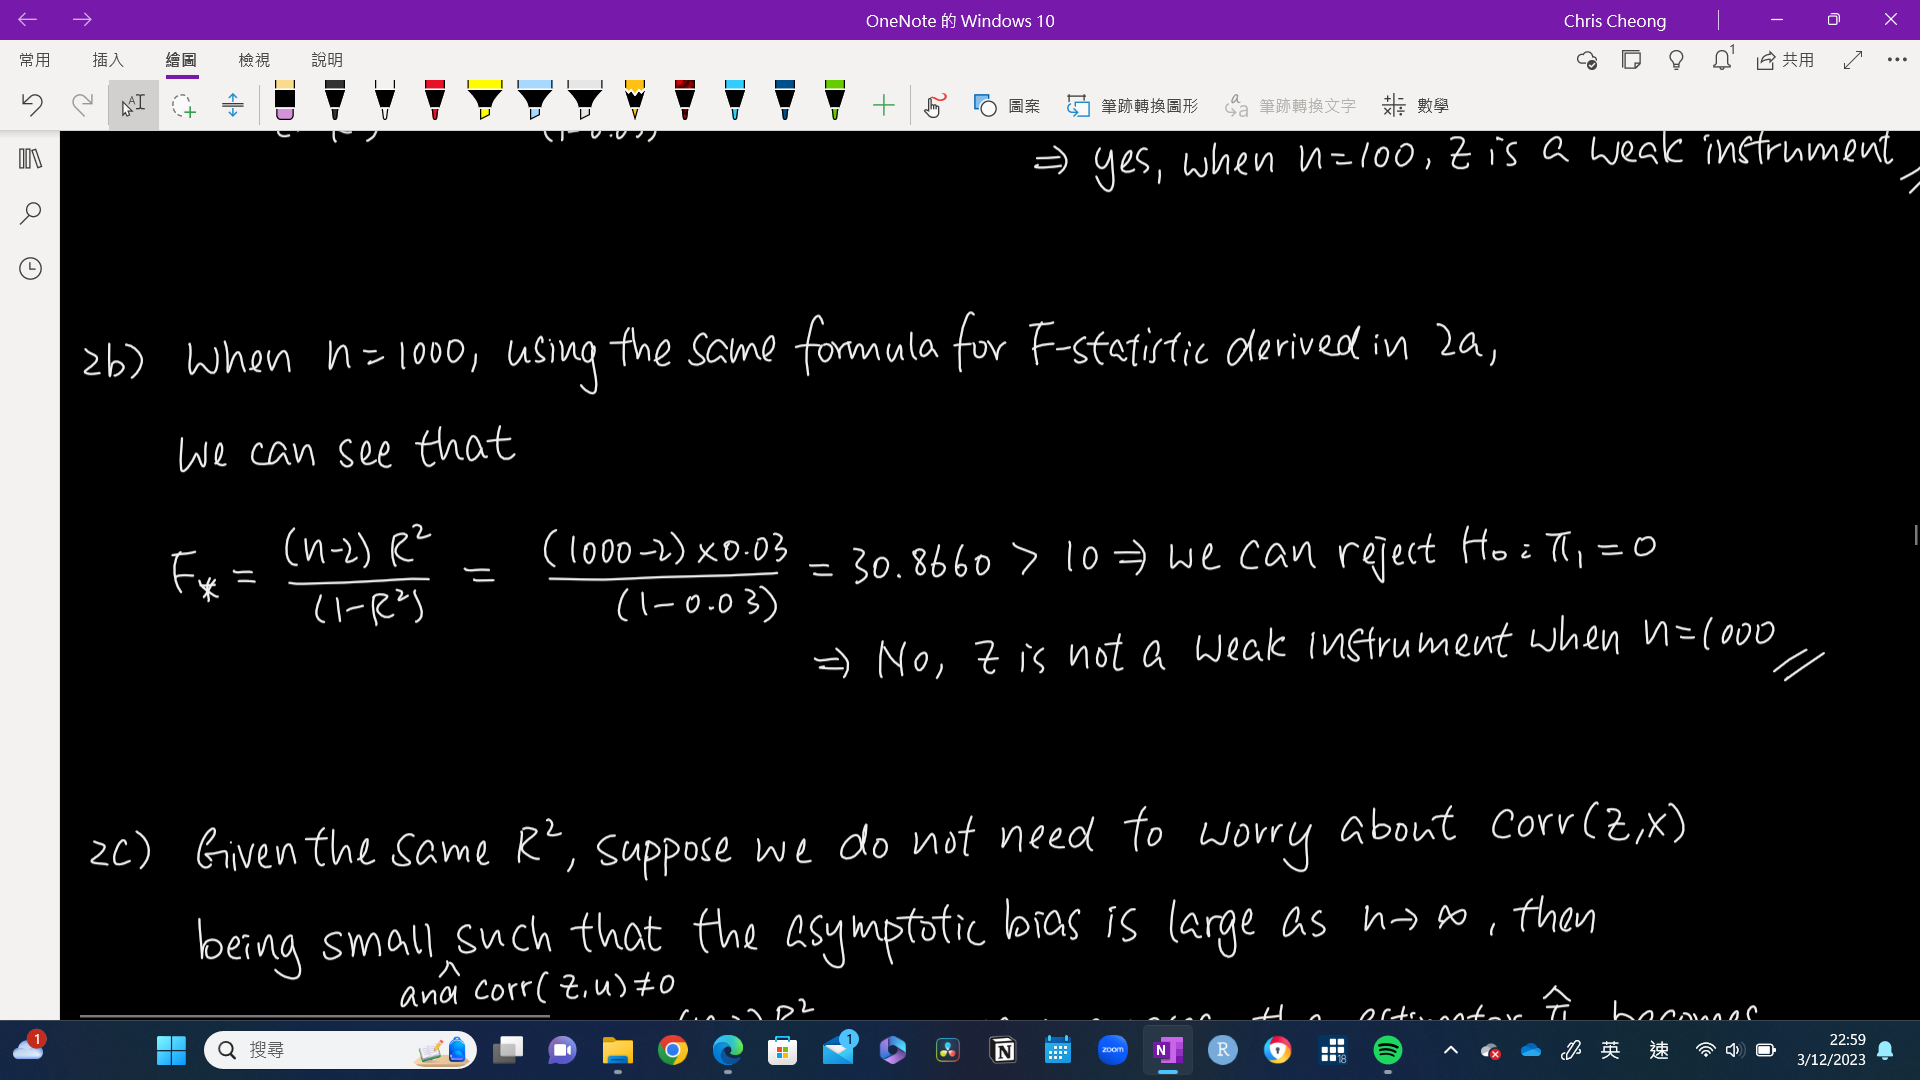 OneNote 的 Windows 10
Chris Cheong
常用 插入 繪圖 檢視 說明
1 共用
圖案 筆跡轉換圖形 筆跡轉換文字 數學
(1-0.03)
⇒ yes, when n=100, Z is a weak instrument
2b) When n=1000, using the same formula for F-statistic derived in 2a,
we can see that
F* = (n-2) R² / (1-R²) = (1000-2) x0.03 / (1-0.03) = 30.8660 > 10 ⇒ we can reject H₀: π₁ = 0
⇒ No, Z is not a weak instrument when n=1000
2c) Given the same R², suppose we do not need to worry about corr(z,x)
being small such that the asymptotic bias is large as n→∞, then
^
and corr(z,u)≠0
R² the estimator π̂ becomes
1
搜尋
1
zoom
N
R
18
英 速
22:59
3/12/2023